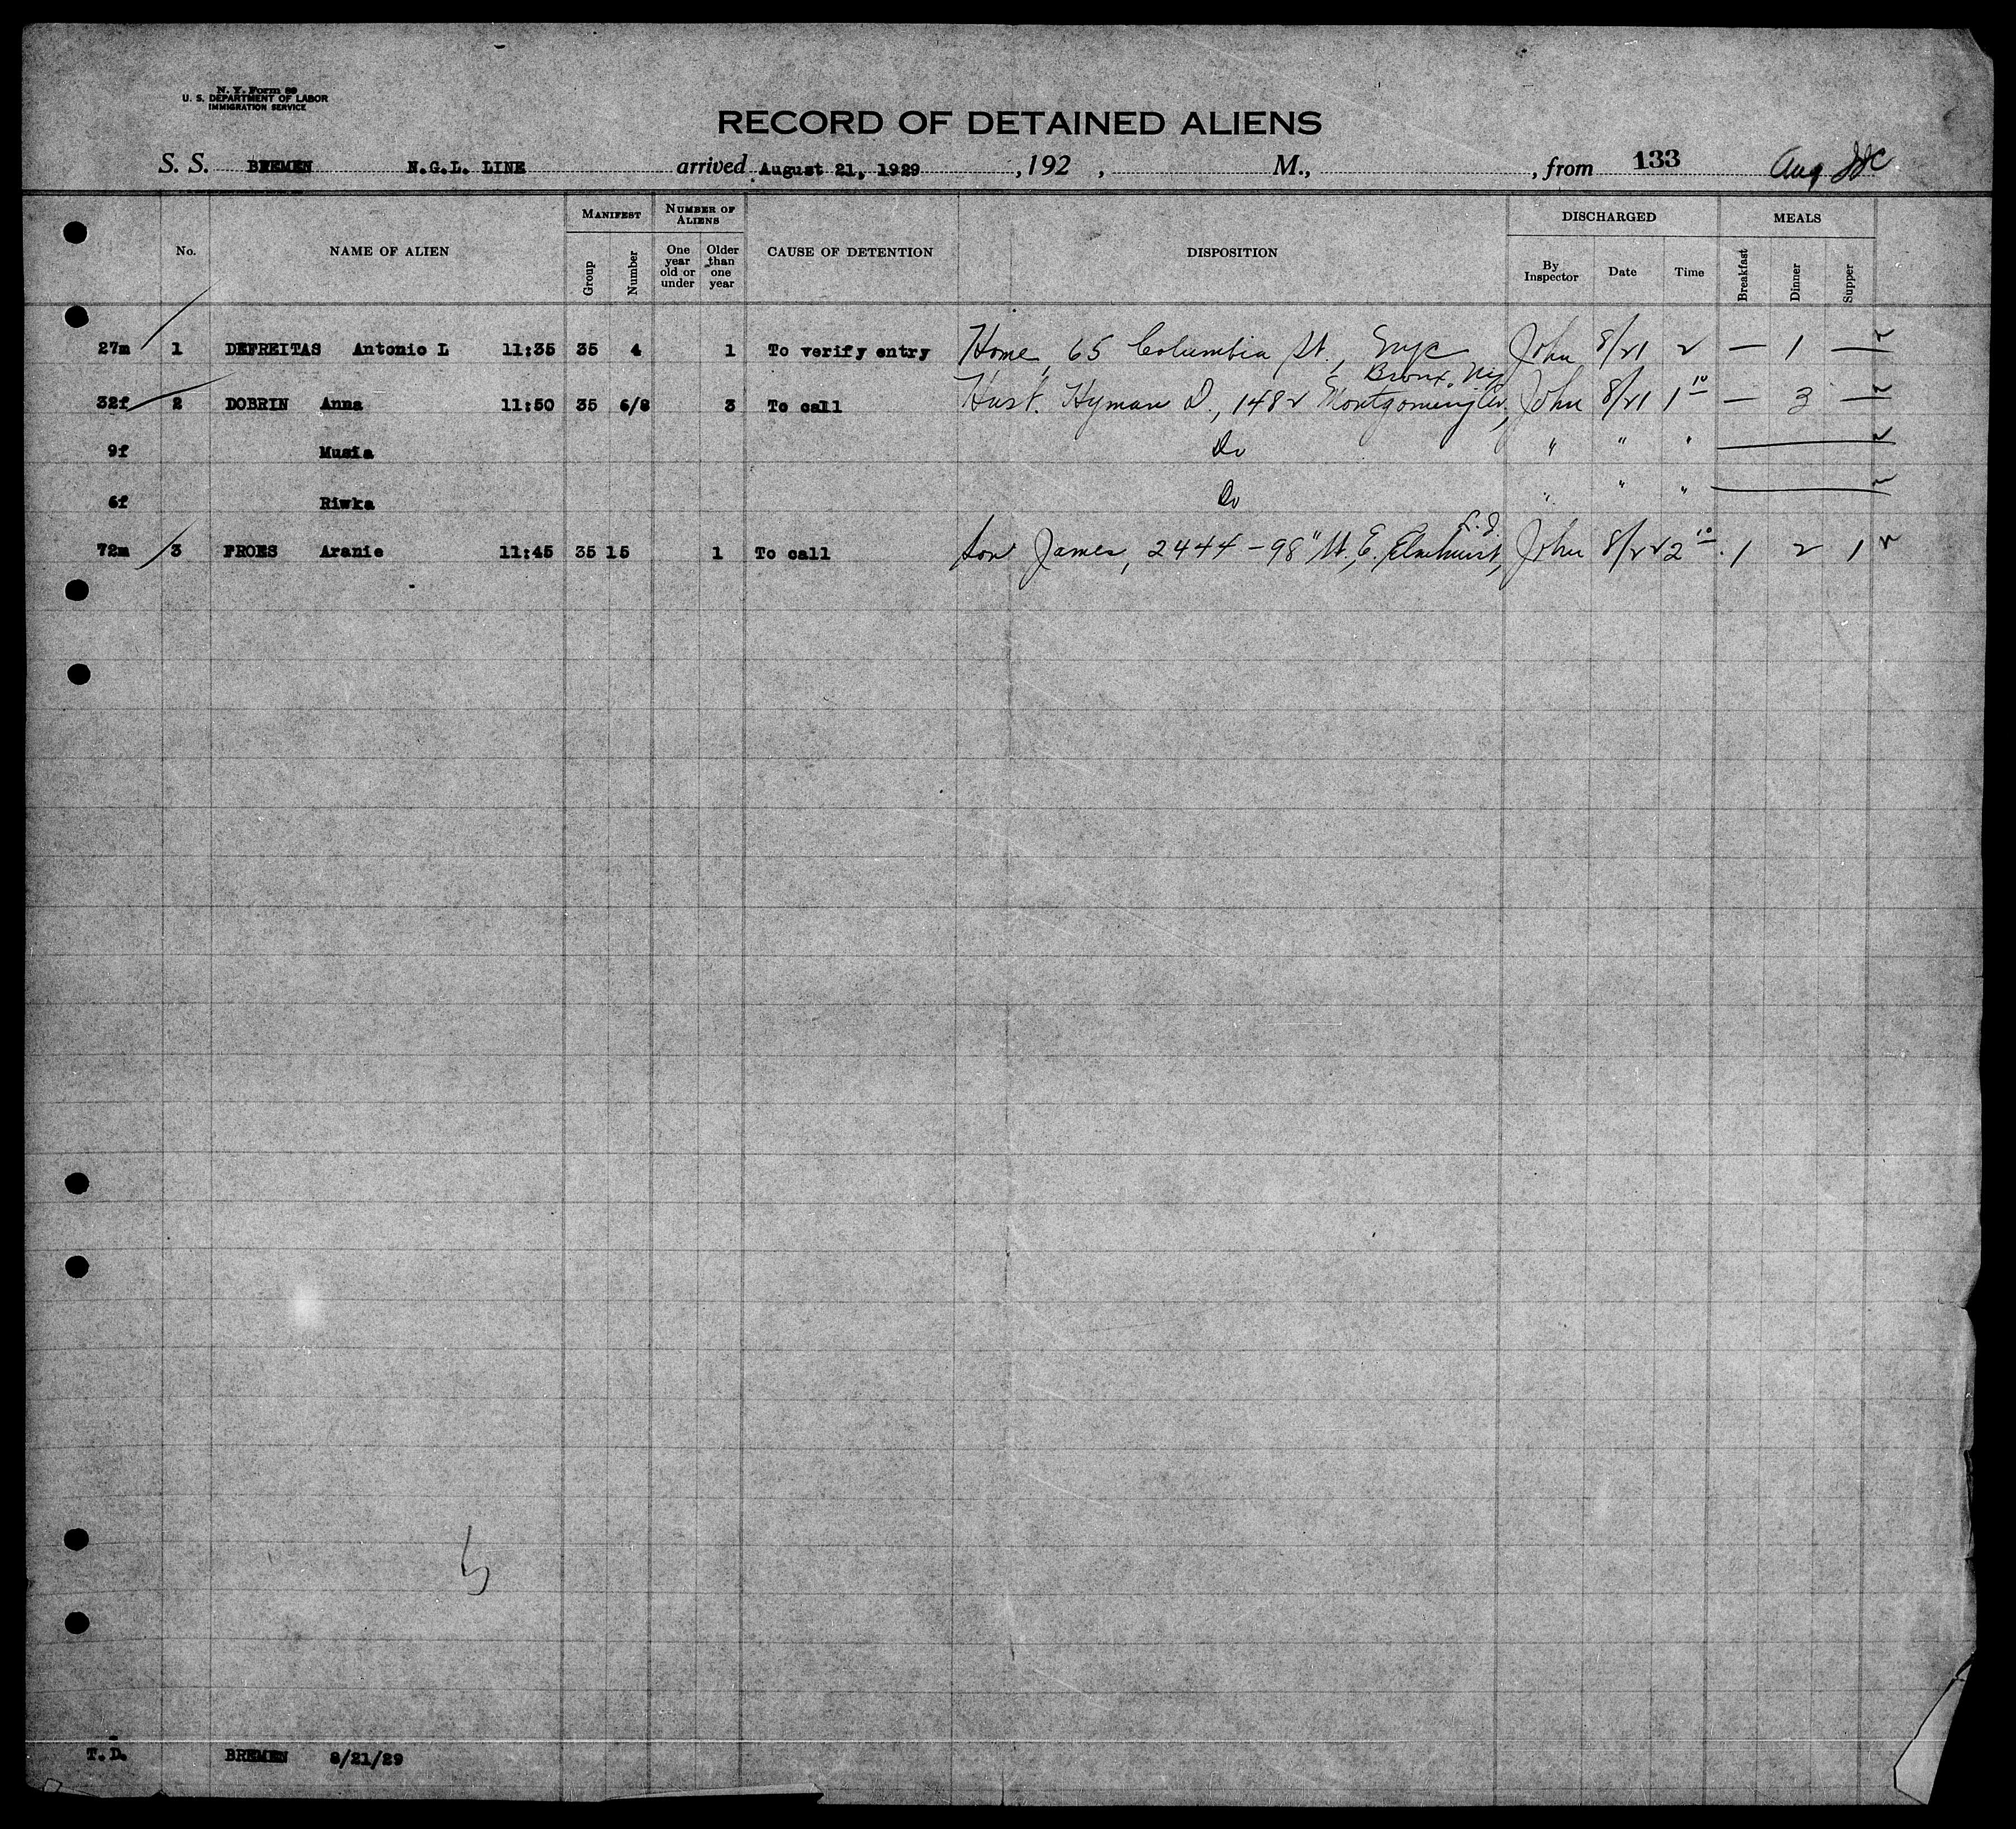 N. Y. Form 89
U. S. DEPARTMENT OF LABOR
IMMIGRATION SERVICE
RECORD OF DETAINED ALIENS
S. S. BREMEN N.G.L. LINE arrived August 21, 1929 , 192 , M., , from 133 Aug
No. NAME OF ALIEN MANIFEST Group Number NUMBER OF ALIENS One year old or under Older than one year CAUSE OF DETENTION DISPOSITION DISCHARGED By Inspector Date Time MEALS Breakfast Dinner Supper
27m 1 DEFREITAS Antonio L 11:35 35 4 1 To verify entry Home, 65 Columbia St., John 8/21 2 — 1 —
Bronx, NY
32f 2 DOBRIN Anna 11:50 35 6/8 3 To call Husb. Hyman D., 1482 Montgomery Av, John 8/21 1 10 — 3 —
9f Musia Do " " "
6f Riwka Do " " "
L.I.
72m 3 FROES Aranie 11:45 35 15 1 To call Son James, 2444 - 98" St., E. Elmhurst, John 8/22 2 10 1 2 1
T.D. BREMEN 8/21/29